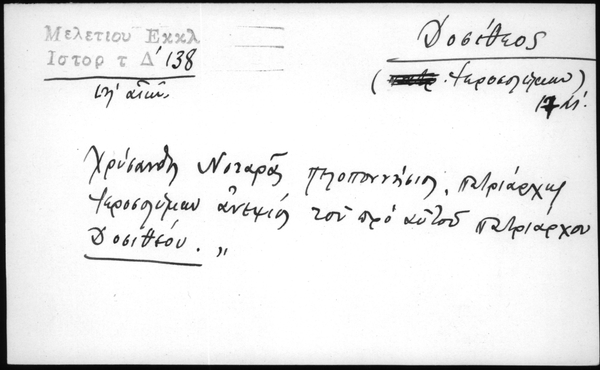 Μελετιου Εκκλ
Ιστορ τ Δ' 138
ιη' αἰών.
Δοσίθεος
( Ἱεροσολύμων)
Χρύσανθος Νοταρᾶς Πελοποννήσιος, Πατριάρχης
Ἱεροσολύμων ἀνεψιός τοῦ πρό αὐτοῦ Πατριάρχου
Δοσιθέου. „